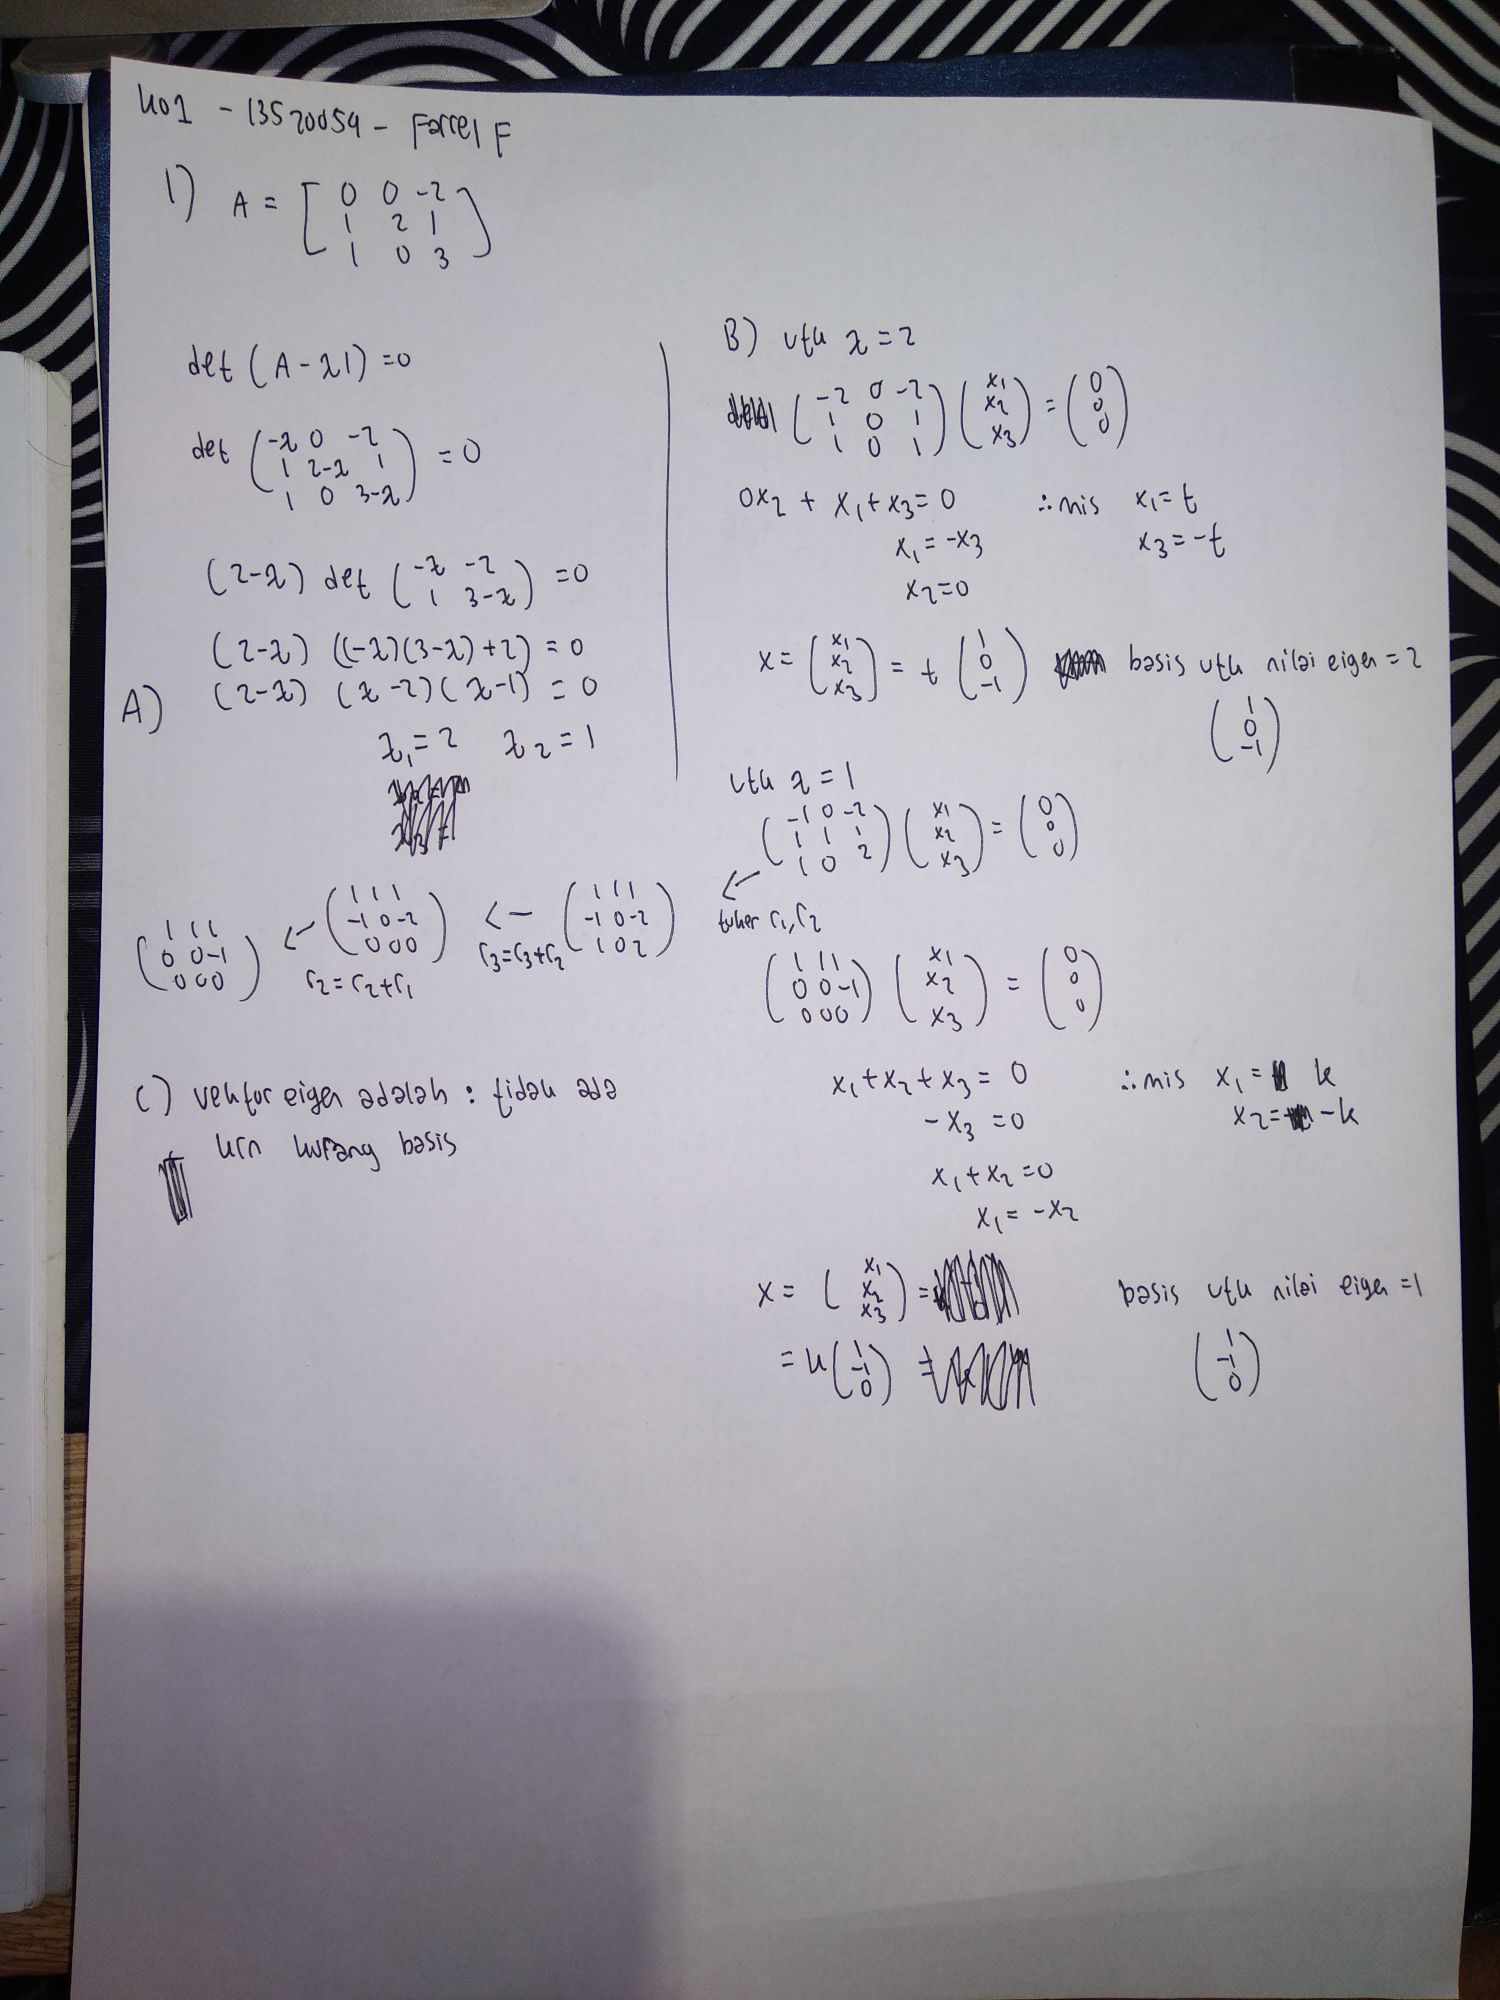 K01 - 13520054 - Farrel F
1) A = [ 0 0 -2
1 2 1
1 0 3 ]
det (A - λI) = 0
det ( -λ 0 -2
1 2-λ 1
1 0 3-λ ) = 0
(2-λ) det ( -λ -2
1 3-λ ) = 0
(2-λ) ((-λ)(3-λ)+2) = 0
A) (2-λ) (λ-2)(λ-1) = 0
λ₁ = 2 λ₂ = 1
B) utk λ = 2
( -2 0 -2
1 0 1
1 0 1 ) ( x₁
x₂
x₃ ) = ( 0
0
0 )
0x₂ + x₁ + x₃ = 0 ∴ mis x₁ = t
x₁ = -x₃ x₃ = -t
x₂ = 0
x = ( x₁
x₂
x₃ ) = t ( 1
0
-1 ) basis utk nilai eigen = 2
( 1
0
-1 )
utk λ = 1
( -1 0 -2
1 1 1
1 0 2 ) ( x₁
x₂
x₃ ) = ( 0
0
0 )
← tuker r₁, r₂
( 1 1 1
-1 0 -2
1 0 2 )
← r₃ = r₃ + r₂
( 1 1 1
-1 0 -2
0 0 0 )
← r₂ = r₂ + r₁
( 1 1 1
0 0 -1
0 0 0 )
( 1 1 1
0 0 -1
0 0 0 ) ( x₁
x₂
x₃ ) = ( 0
0
0 )
x₁ + x₂ + x₃ = 0 ∴ mis x₁ = k
-x₃ = 0 x₂ = -k
x₁ + x₂ = 0
x₁ = -x₂
x = ( x₁
x₂
x₃ ) =
= k ( 1
-1
0 ) basis utk nilai eigen = 1
( 1
-1
0 )
C) vektor eigen adalah : tidak ada
krn kurang basis